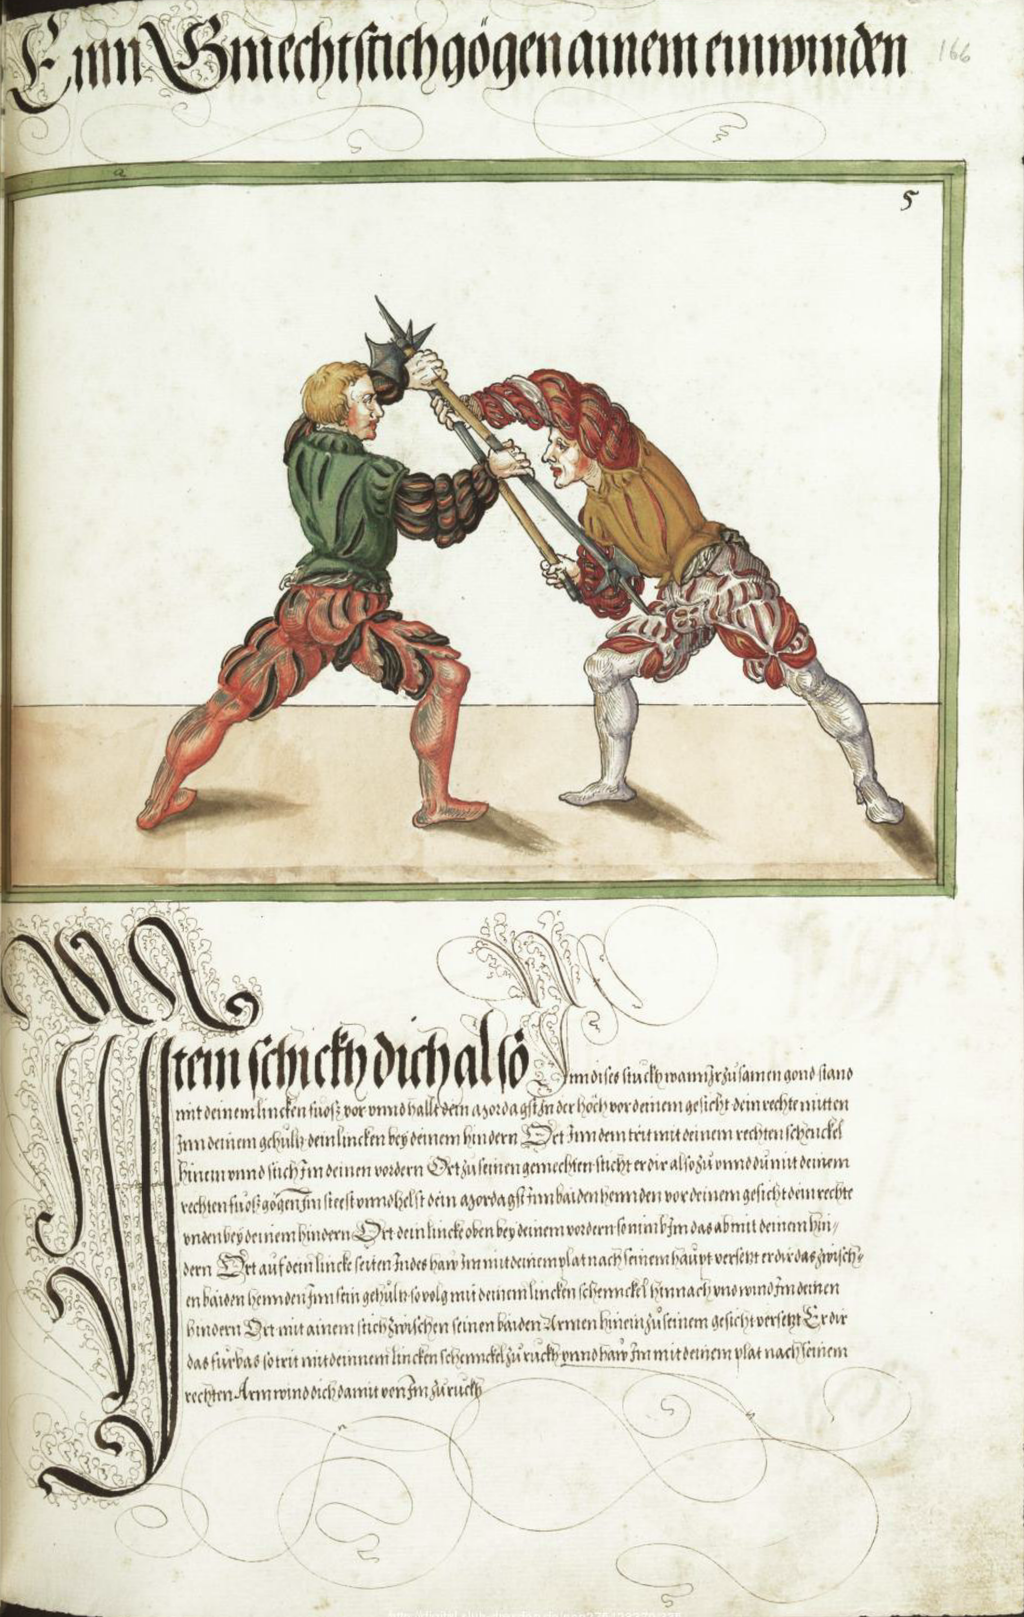 Einn Gmecht stich gögen ainem einwinden
166
a
5
Item schickh dich alsö Inn dises stuckh wann Ir zusamen gond stand
mit deinem lincken fuosz vor vnnd hallt dein mordagst In der höch vor deinem gesicht dein rechte mitten
Inn deinem gehultz dein lincken bey deinem hindern Ort Inn dem trit mit deinem rechten schenckel
hinein vnnd stich Im deinen vordern Ort zu seinen gemechten sticht er dir also zu vnnd du mit deinem
rechten fuosz gögen Im steest vnnd helst dein mordagst Inn baiden hennden vor deinem gesicht dein rechte
vnden bey deinem hindern Ort dein lincke oben bey deinem vordern so nimb Im das ab mit deinem hin/
dern Ort auf dein lincke seiten Indes haw Im mit deinem plat nach seinem haupt versetzt er dir das zwisch=
en baiden hennden Inn sein gehultz so volg mit deinem lincken schennckel hinnach vnd wind Im deinen
hindern Ort mit ainem stich zwischen seinen baiden Armen hinein zu seinem gesicht versetzt Er dir
das fürbas so trit mit deinnem lincken schennckel zu ruckh vnnd haw Im mit deinem plat nach seinem
rechten Arm wind dich damit von Im zu ruckh